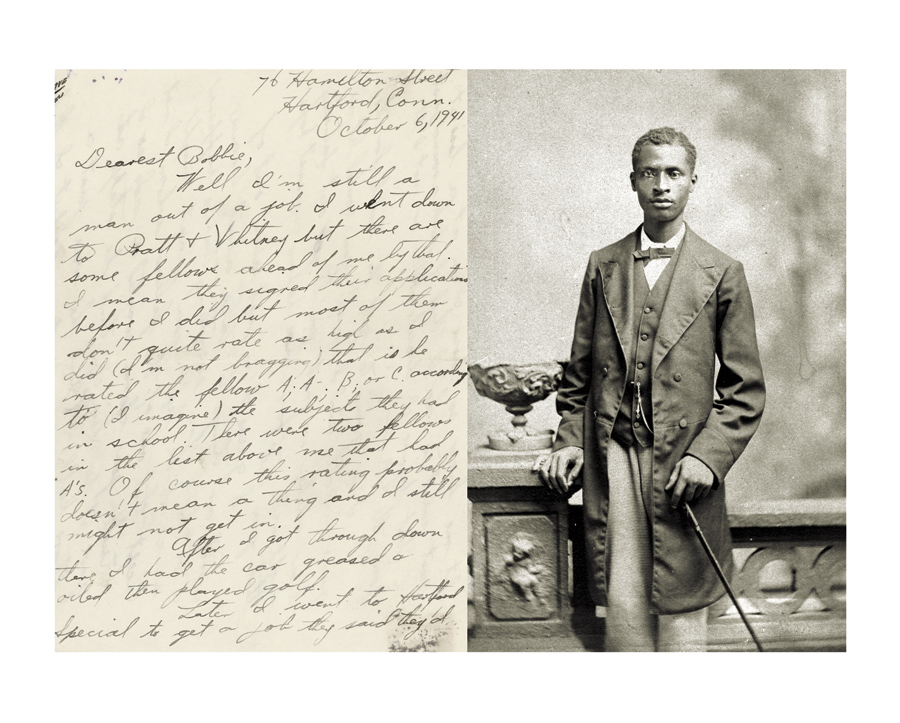 76 Hamilton Street
Hartford, Conn.
October 6, 1941
Dearest Bobbie,
Well I'm still a
man out of a job. I went down
to Pratt & Whitney but there are
some fellows ahead of me by
I mean they signed their applications
before I did but most of them
don't quite rate as high as I
did (I'm not bragging) that is he
rated the fellow A; A-; B; or C. according
to (I imagine) the subjects they had
in school. There were two fellows
in the list above me that had
A's. Of course this rating probably
doesn't mean a thing and I still
might not get in.
After I got through down
there I had the car greased &
oiled then played golf.
Later I went to Hartford
Special to get a job they said they'd